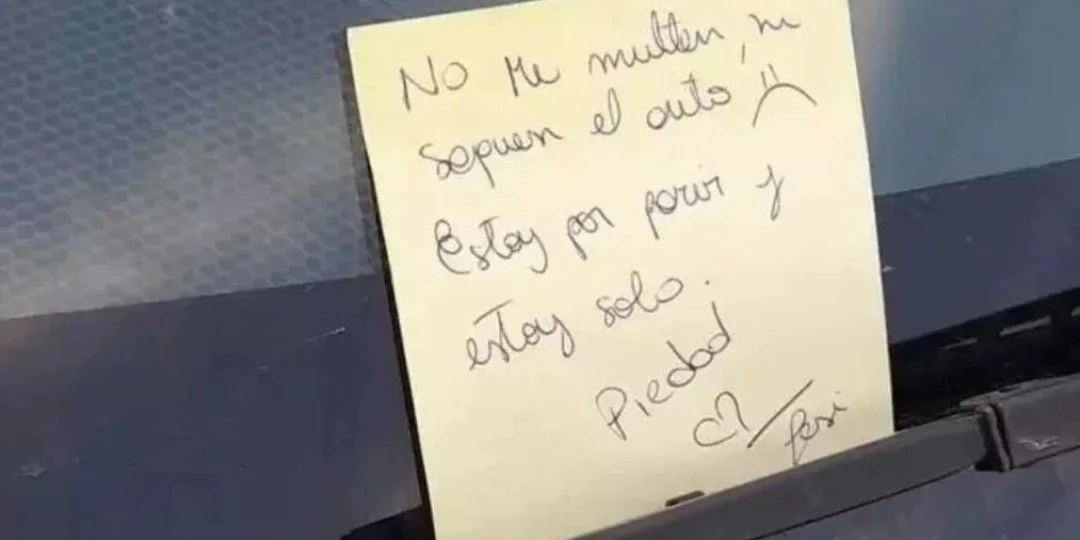 No me multen, ni
saquen el auto
Estoy por parir y
estoy sola.
Piedad